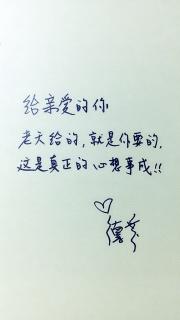 给亲爱的你
老天给的，就是你要的，
这是真正的心想事成！！
德芬